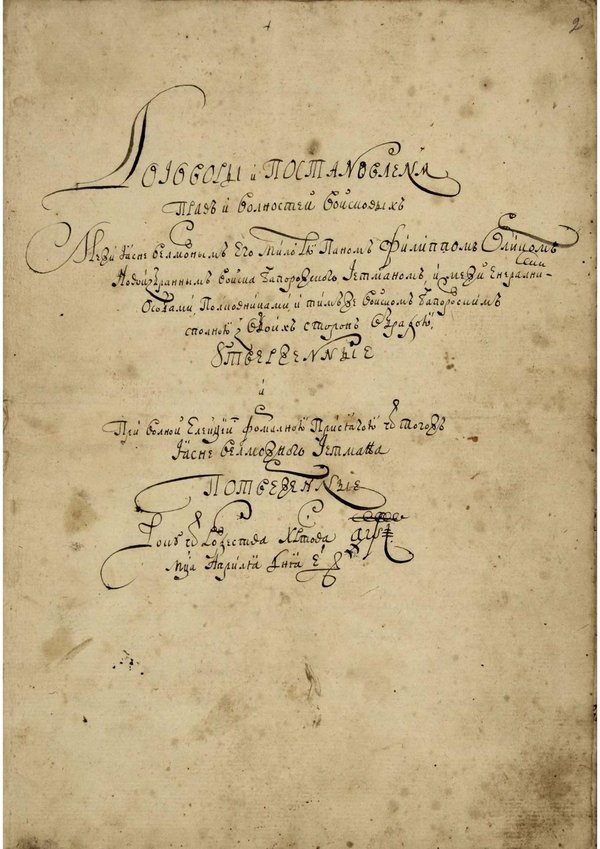 2
Договоры и Постановленя
Правъ и волностей войсковыхъ
Межи Ясне велможнымъ Его Милостю Паномъ Филиппомъ Орликомъ
Новоизбраннымъ войска Запорожского Гетманомъ, и межи Енералними
Особами Полковниками, и тимже войскомъ Запорозскимъ
сполною з обоихъ сторонъ обрадою,
Утверженные
и
При волной Елекцій формалною Присягою ѿ тогожъ
Ясне велможного Гетмана
Потверженные
Року ѿ Рожества Христова аѱі
мца Априля дня е